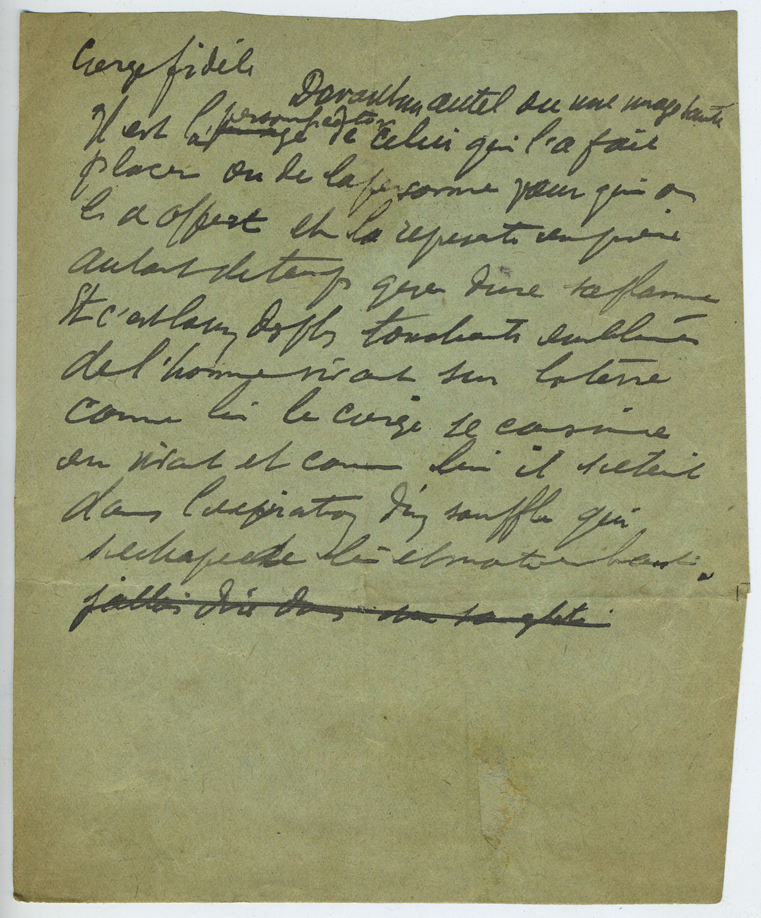 Cierge fidèle
Devant un autel ou une image sainte
Il est la personnification
l'image de celui qui l'a fait
placer ou de la personne pour qui on
l'a offert et la représente en prière
autant de temps que dure sa flamme
Et c'est l'un des plus touchants emblèmes
de l'homme vivant sur la terre
comme lui le cierge se consume
en vivant et comme lui il s'éteint
dans l'expiration d'un souffle qui
s'échappe de lui et monte
j'allais dire dans un sanglot